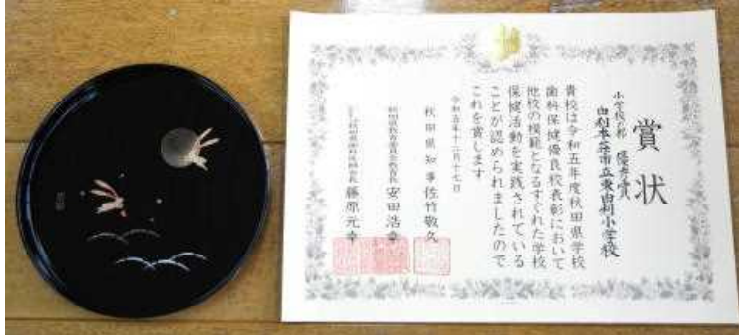 賞状
小学校の部 優秀賞
由利本荘市立東由利小学校
貴校は令和五年度秋田県学校
歯科保健優良校表彰において
他校の模範となるすぐれた学校
保健活動を実践されている
ことが認められましたので
これを賞します
令和五年十二月十七日
秋田県知事 佐竹敬久
秋田県教育委員会教育長 安田浩幸
秋田県歯科医師会長 藤原元幸